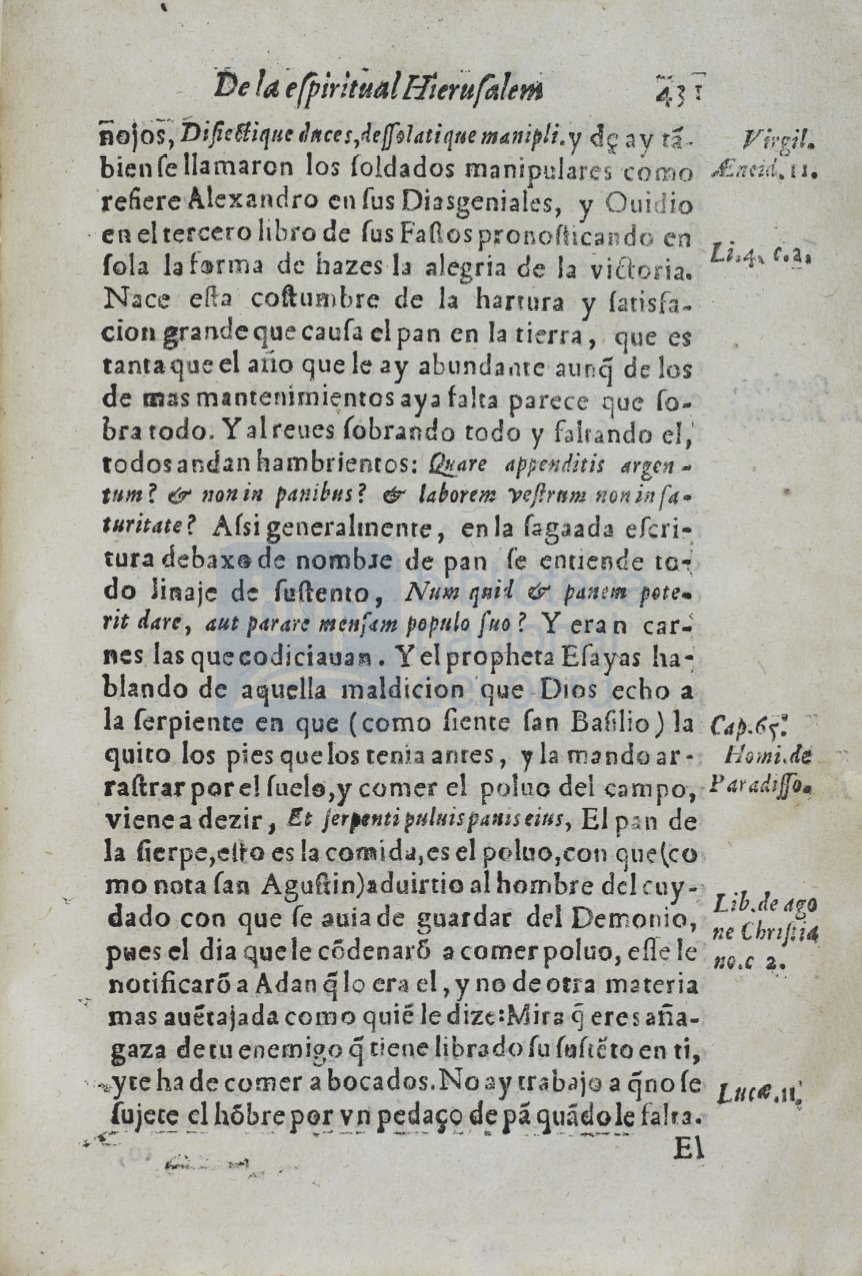 De la eſpiritual Hieruſalem 431
ñojos, Diſiectique duces, deſſolatique manipli. y de ay tã-
bien ſe llamaron los ſoldados manipulares como
refiere Alexandro en ſus Diasgeniales, y Ouidio
en el tercero libro de ſus Faſtos pronoſticando en
ſola la forma de hazes la alegria de la victoria.
Nace eſta coſtumbre de la hartura y ſatisfa-
cion grande que cauſa el pan en la tierra, que es
tanta que el año que le ay abundante aunq̃ de los
de mas mantenimientos aya falta parece que ſo-
bra todo. Y al reues ſobrando todo y faltando el,
todos andan hambrientos: Quare appenditis argen-
tum? & non in panibus? & laborem veſtrum non in ſa-
turitate? Aſsi generalmente, en la ſagaada eſcri-
tura debaxo de nombre de pan ſe entiende to-
do linaje de ſuſtento, Num quid & panem pote-
rit dare, aut parare menſam populo ſuo? Y eran car-
nes las que codiciauan. Y el propheta Eſayas ha-
blando de aquella maldicion que Dios echo a
la ſerpiente en que (como ſiente ſan Baſilio) la
quito los pies que los tenia antes, y la mando ar-
raſtrar por el ſuelo, y comer el poluo del campo,
viene a dezir, Et ſerpenti puluis panis eius, El pan de
la ſierpe, eſto es la comida, es el poluo, con que (co
mo nota ſan Aguſtin) aduirtio al hombre del cuy-
dado con que ſe auia de guardar del Demonio,
pues el dia que le cõdenarõ a comer poluo, eſſe le
notificarõ a Adan q̃ lo era el, y no de otra materia
mas auẽtajada como quiẽ le dize: Mira q̃ eres aña-
gaza de tu enemigo q̃ tiene librado ſu ſuſtẽto en ti,
y te ha de comer a bocados. No ay trabajo a q̃ no ſe
ſujete el hõbre por vn pedaço de pã quãdo le falta.
El
Virgil.
Æneid. 11.
Li. 4. c. 2.
Cap. 65.
Homi. de
Paradiſſo.
Lib. de ago
ne Chriſtia
no. c 2.
Lucæ. 11.